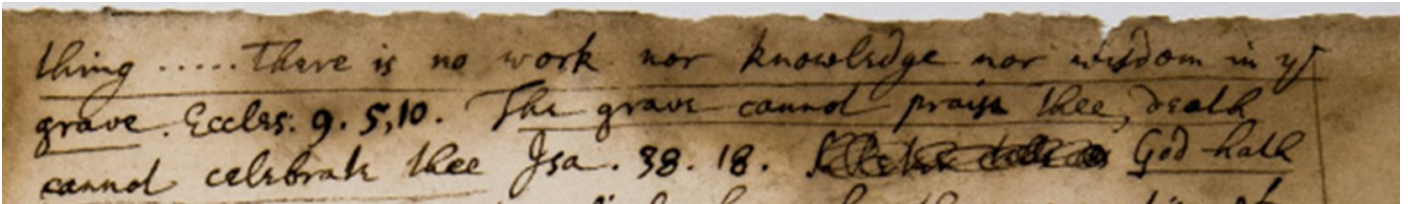 thing ..... There is no work nor knowledge nor wisdom in yᵉ
grave. Eccles. 9. 5,10. The grave cannot praise thee, death
cannot celebrate thee Isa. 38. 18. God hath